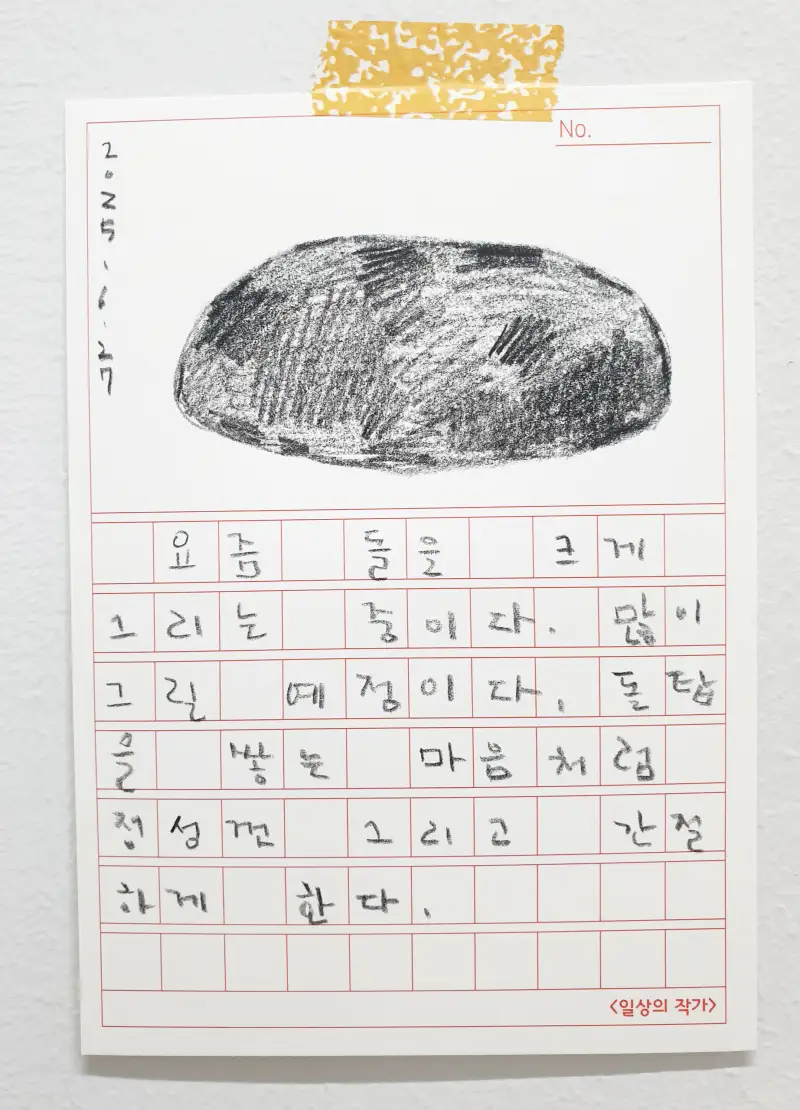 No.
2025.6.27
요즘 돌을 크게
그리는 중이다. 많이
그릴 예정이다. 돌탑
을 쌓는 마음처럼
정성껏 그리고 간절
하게 한다.
<일상의 작가>